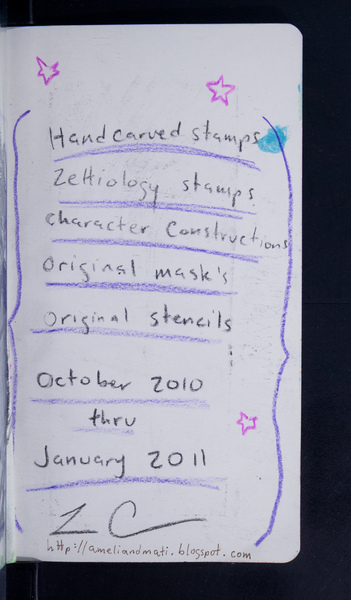 Handcarved stamps
Zettiology stamps
character constructions
original mask's
original stencils
October 2010
thru
January 2011
ZC
http://ameliandmati.blogspot.com